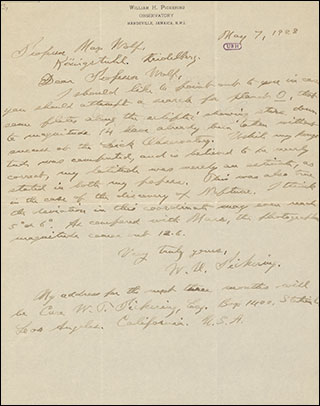 WILLIAM H. PICKERING
OBSERVATORY
MANDEVILLE, JAMAICA, B.W.I.
May 7, 1928
Professor Max Wolf,
Königstuhl, Heidelberg.
Dear Professor Wolf,
I should like to point out to you in case
you should attempt a search for planet O, that
some plates along the ecliptic showing stars down
to magnitude 14 have already been taken without
success at the Lick Observatory. Whilst my longi-
tude was computed, and is believed to be nearly
correct, my latitude was merely an estimate, as
stated in both my papers. This was also true
in the case of the discovery of Neptune. I think
the deviation in this coordinate may even reach
5° or 6°. As compared with Mars, the photographic
magnitude comes out 12.6.
Very truly yours,
W. H. Pickering.
My address for the next three months will
be Care W. T. Pickering, Esq. Box 1400, Station
Los Angeles. California. U.S.A.